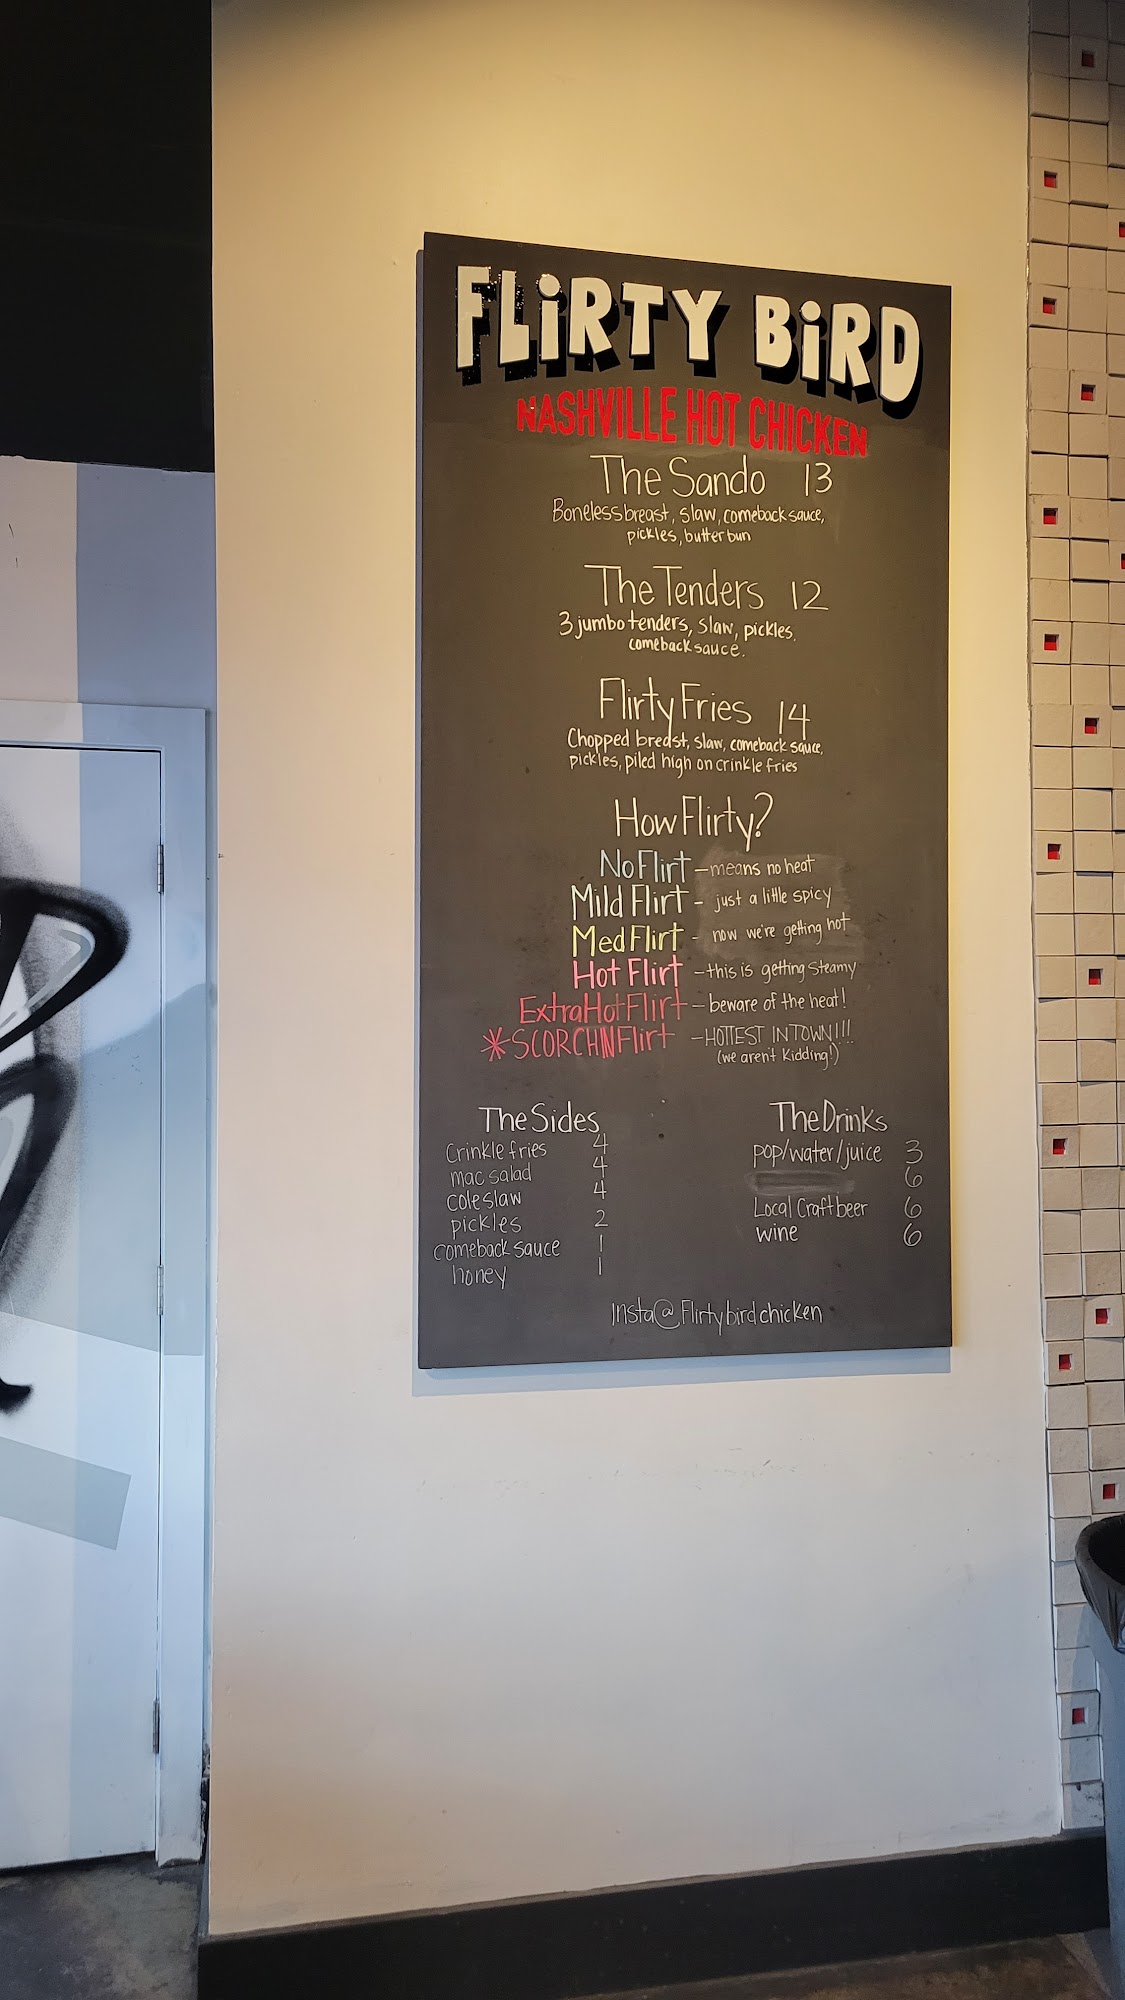 FLiRTY BiRD
NASHVILLE HOT CHICKEN
The Sando 13
Boneless breast, slaw, comeback sauce,
pickles, butter bun
The Tenders 12
3 jumbo tenders, slaw, pickles,
comeback sauce.
Flirty Fries 14
Chopped breast, slaw, comeback sauce,
pickles, piled high on crinkle fries
How Flirty?
No Flirt - means no heat
Mild Flirt - just a little spicy
Med Flirt - now we're getting hot
Hot Flirt - this is getting steamy
Extra Hot Flirt - beware of the heat!
*SCORCHIN Flirt - HOTTEST IN TOWN!!!
(we aren't kidding!)
The Sides
Crinkle fries 4
mac salad 4
coleslaw 4
pickles 2
comeback sauce 1
honey 1
The Drinks
pop/water/juice 3
6
Local Craft beer 6
wine 6
Insta@Flirtybirdchicken